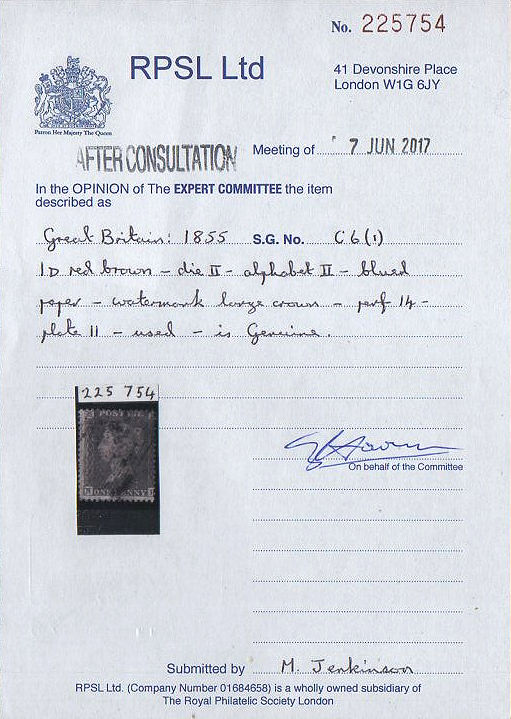 No. 225754
RPSL Ltd
41 Devonshire Place
London W1G 6JY
Patron Her Majesty The Queen
AFTER CONSULTATION
Meeting of 7 JUN 2017
In the OPINION of The EXPERT COMMITTEE the item
described as
Great Britain: 1855 S.G. No. C6(1)
1D red brown – die II – alphabet II – blued
paper – watermark large crown – perf 14 –
plate 11 – used – is Genuine.
225 754
POSTAGE
ONE PENNY
On behalf of the Committee
Submitted by M. Jenkinson
RPSL Ltd. (Company Number 01684658) is a wholly owned subsidiary of
The Royal Philatelic Society London